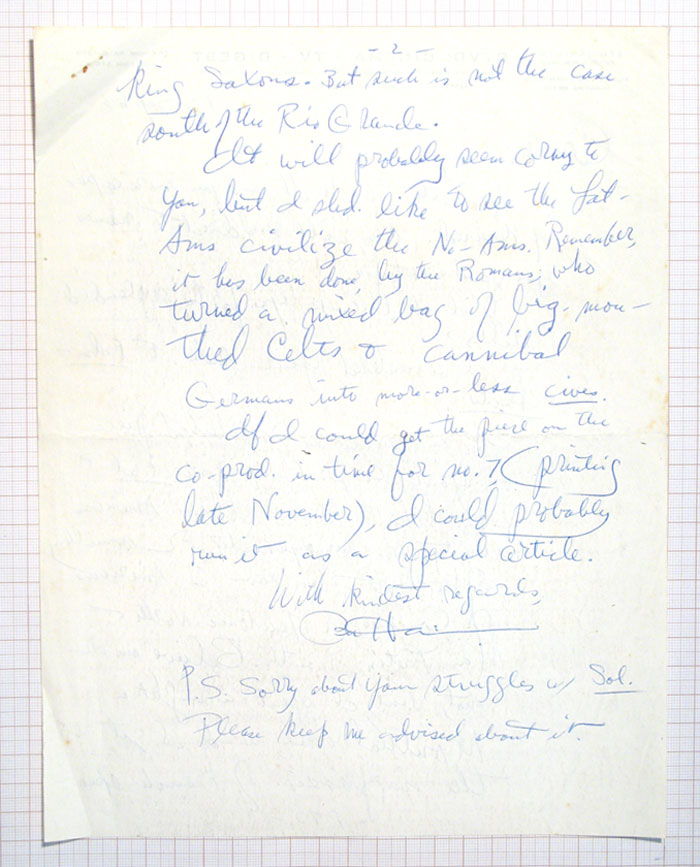 - 2 -
King Saxons. But such is not the case
south of the Rio Grande.
It will probably seem corny to
you, but I shd. like to see the Lat-
Ams civilize the No-Ams. Remember,
it has been done, by the Romans, who
turned a mixed bag of big-mou-
thed Celts & cannibal
Germans into more-or-less cives.
If I could get the piece on the
co-prod. in time for no. 7, (printing
late November), I could probably
run it as a special article.
With kindest regards,
P.S. Sorry about your struggles w/ Sol.
Please keep me advised about it.